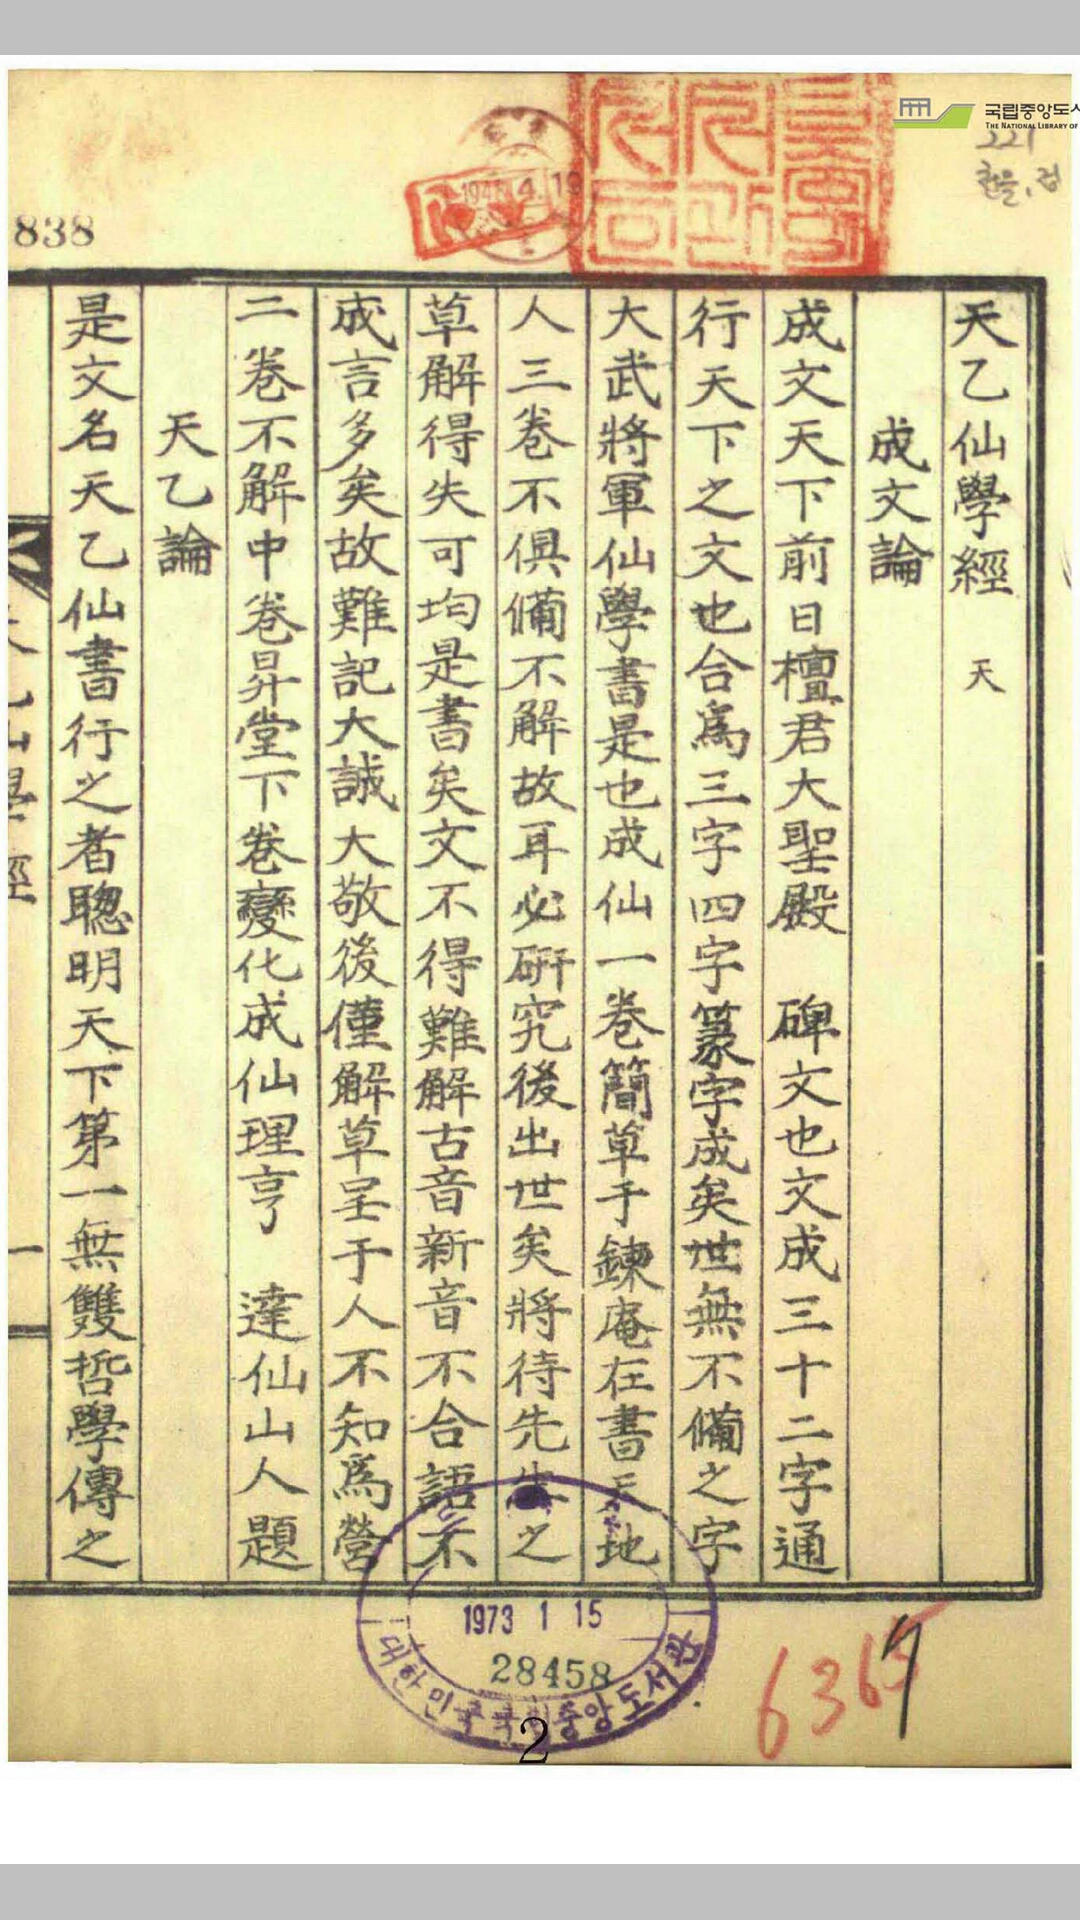 국립중앙도서
THE NATIONAL LIBRARY OF
221
838
天乙仙學經 天
成文論
成文天下前日檀君大聖殿 碑文也文成三十二字通
行天下之文也合爲三字四字篆字成矣世無不備之字
大武將軍仙學書是也成仙一卷簡草于鍊庵在書天地
人三卷不俱備不解故耳必硏究後出世矣將待先生之
草解得失可均是書矣文不得難解古音新音不合語不
成言多矣故難記大誠大敬後僅解草呈于人不知爲營
二卷不解中卷昇堂下卷變化成仙理亨 達仙山人題
天乙論
是文名天乙仙書行之者聰明天下第一無雙哲學傳之
一
1973 1 15
28458
대한민국국립중앙도서관
2